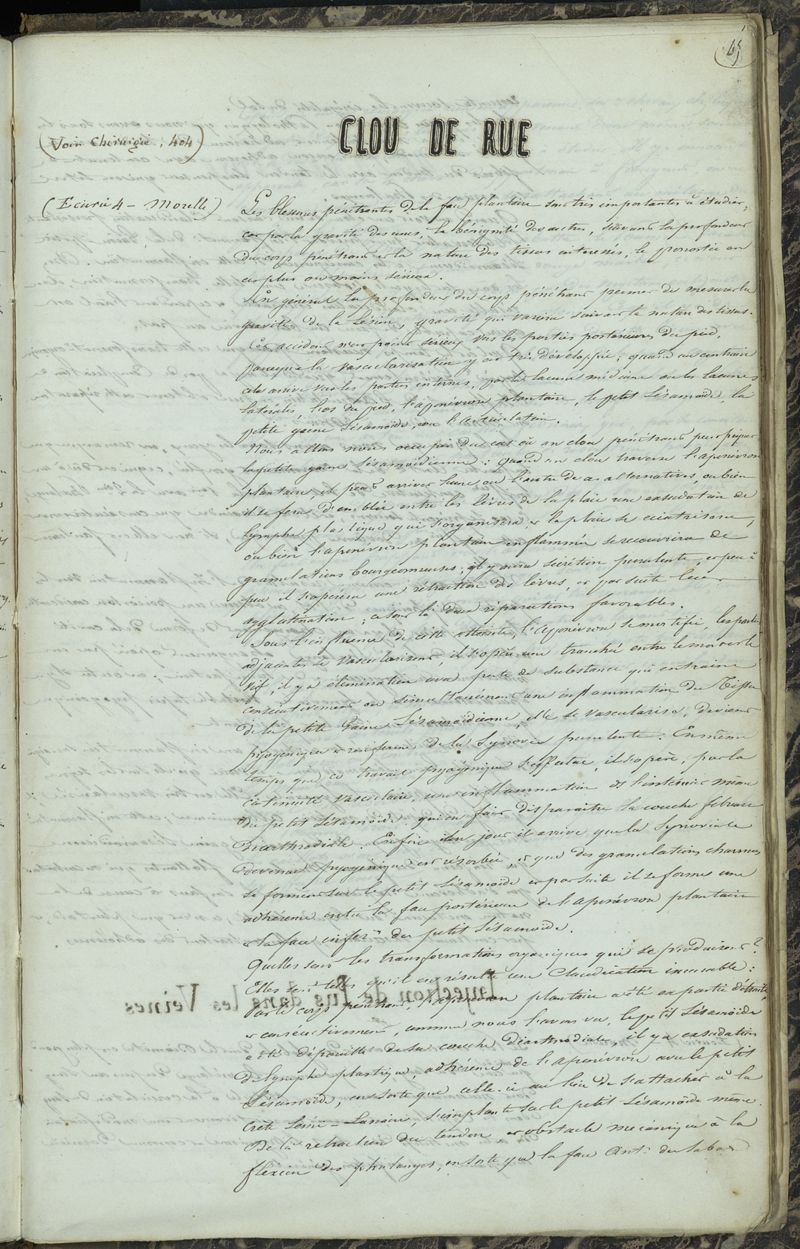 45
CLOU DE RUE
(Voir Chirurgie, 404)
(Ecurie 4 - Morelle)
Les blessures pénétrantes de la face plantaire sont très importantes à étudier,
car par la gravité des unes, la bénignité des autres, suivant la profondeur
du corps pénétrant et la nature des tissus intéressés, le pronostic en
est plus ou moins sérieux.
En général la profondeur du corps pénétrant permet de mesurer la
gravité de la Lésion, gravité qui variera suivant la nature des tissus.
Cet accident n'est point sérieux vers les parties postérieures du pied,
parceque la vascularisation y est très développée; quand au contraire
cela arrive vers les parties internes, par la lacune médiane ou les lacunes
latérales, l'os du pied, l'aponévrose plantaire, le petit sésamoïde, la
petite gaine sésamoïde, ou l'articulation.
Nous allons nous occuper du cas où un clou pénétrant peut piquer
la petite gaine sésamoïdienne: Quand un clou traverse l'aponévrose
plantaire, il peut arriver l'une ou l'autre de ces alternatives, ou bien
il se fera d'emblée entre les lèvres de la plaie une exsudation de
lymphe plastique qui s'organisera et la plaie se cicatrisera,
ou bien l'aponévrose plantaire enflammée se recouvrira de
granulations bourgeonneuses; il y aura sécrétion purulente, et peu à
peu il s'opérera une rétraction des lèvres, et par suite leur
agglutination; ce sont là deux réparations favorables.
Sous l'influence de cette atteinte, l'aponévrose se mortifie, les parties
adjacentes se vascularisent, il s'opère une tranchée entre le mort et le
vif, il y a élimination avec perte de substance qui entraine
consécutivement ou simultanément une inflammation du Tissu
de la petite Gaine Sésamoïdienne, elle se vascularise, devient
pyogénique et renferme de la Synovie purulente: En même
temps que ce travail pyogénique s'effectue, il s'opère, par la
continuité vasculaire, une inflammation de l'intérieur même
du petit sésamoïde qui en fait disparaître la couche fibreuse
diarthrodiale. Enfin un jour il arrive que la Synoviale
devenue pyogénique est résorbée, et que des granulations charnues
se forment sur le petit sésamoïde et par suite il se forme une
adhérence entre la face postérieure de l'aponévrose plantaire
et la face infér.re du petit sésamoïde.
Quelles sont les transformations organiques qui se produisent?
Elles sont telles qu'il en résulte une Claudication incurable:
Par le corps pénétrant, l'aponévrose plantaire a été en partie détruite,
et consécutivement, comme nous l'avons vu, le petit Sésamoïde
a été dépouillé de sa couche diarthrodiale, il y a exsudation
de lymphe plastique, adhérence de l'aponévrose avec le petit
Sésamoïde, en sorte que celle-ci au lieu de s'attacher à la
crête Semi-Lunaire, s'implante sur le petit Sésamoïde même.
De là rétraction du tendon et obstacle mécanique à la
flexion des phalanges, en sorte que la face Ant.re du sabot
Injection de Pus dans les Veines